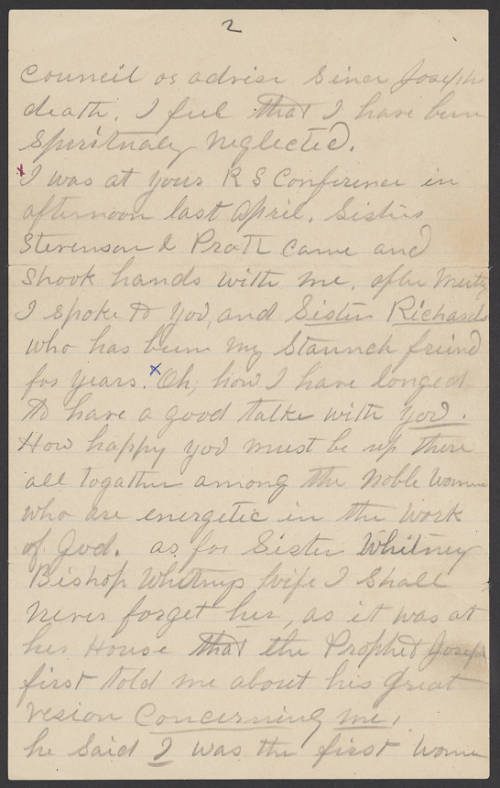 2
Council or advise Since Joseph
death. I feel that I have been
Spiritualy neglected.
x I was at your R S Conference in
afternoon last April. Sisters
Stevenson & Pratt Came and
Shook hands with me. after Meeting
I spoke to you, and Sister Richards
who has been my Staunch friend
for years. x Oh, how I have longed
to have a good talke with you.
How happy you must be up there
all togather among the Noble Women
who are energetic in the work
of God. as for Sister Whitney
Bishop Whitneys wife I Shall
never forget her, as it was at
her House that the Prophet Joseph
first told me about his great
vesion Concerning me,
he Said I was the first Women